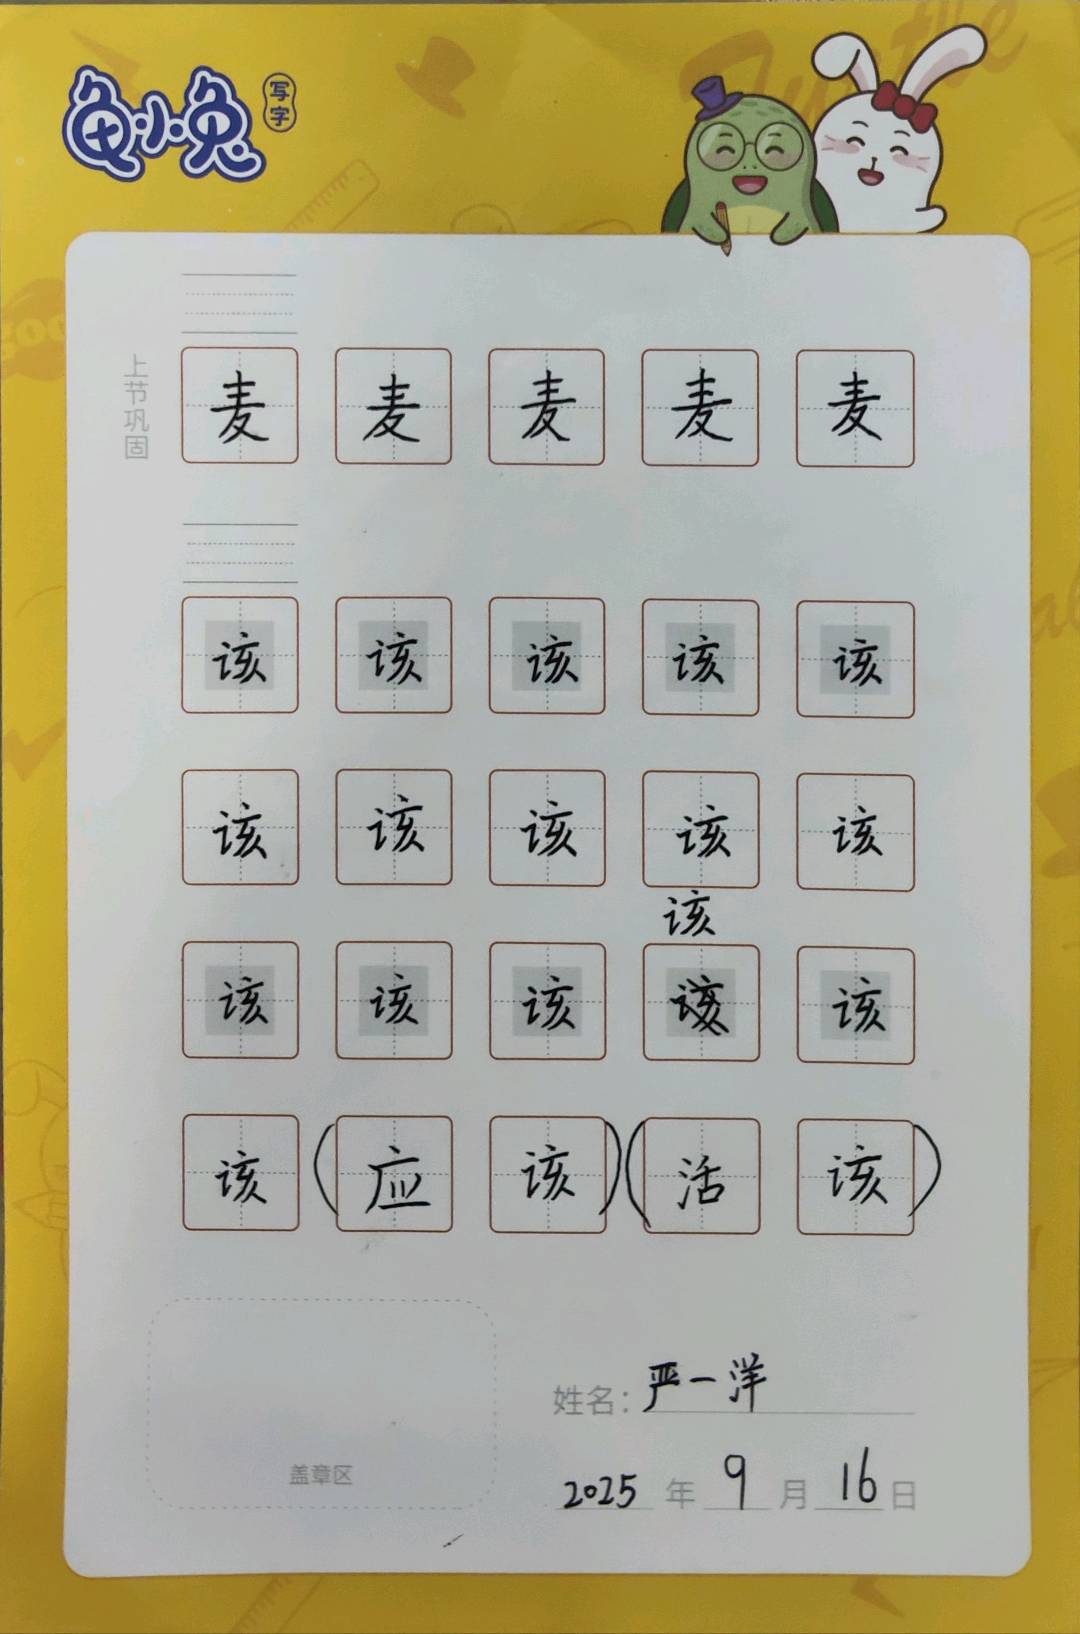 龟小兔 写字
上节巩固
麦 麦 麦 麦 麦
该 该 该 该 该
该 该 该 该 该
该
该 该 该 该 该
该 (应 该) (活 该)
姓名: 严一洋
盖章区
2025 年 9 月 16 日